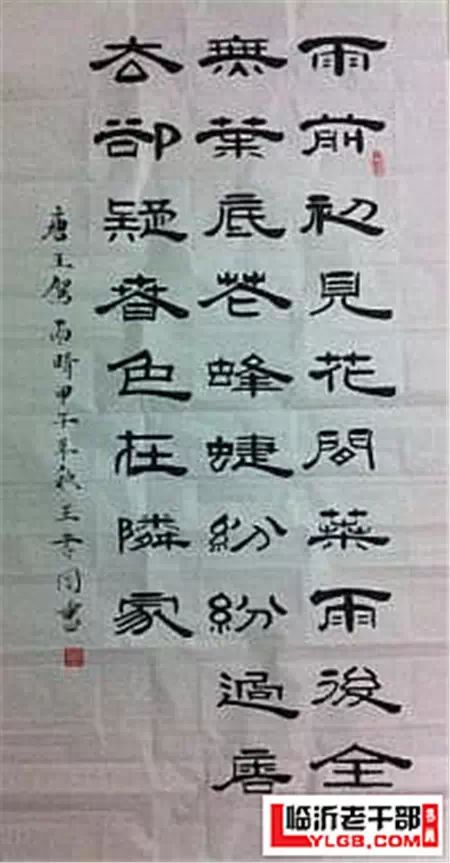 雨前初見花間葉雨後全
無葉底花蜂蝶紛紛過
去卻疑春色在隣家
唐王駕雨晴甲午年秋王同書
临沂老干部
LYLGB.COM